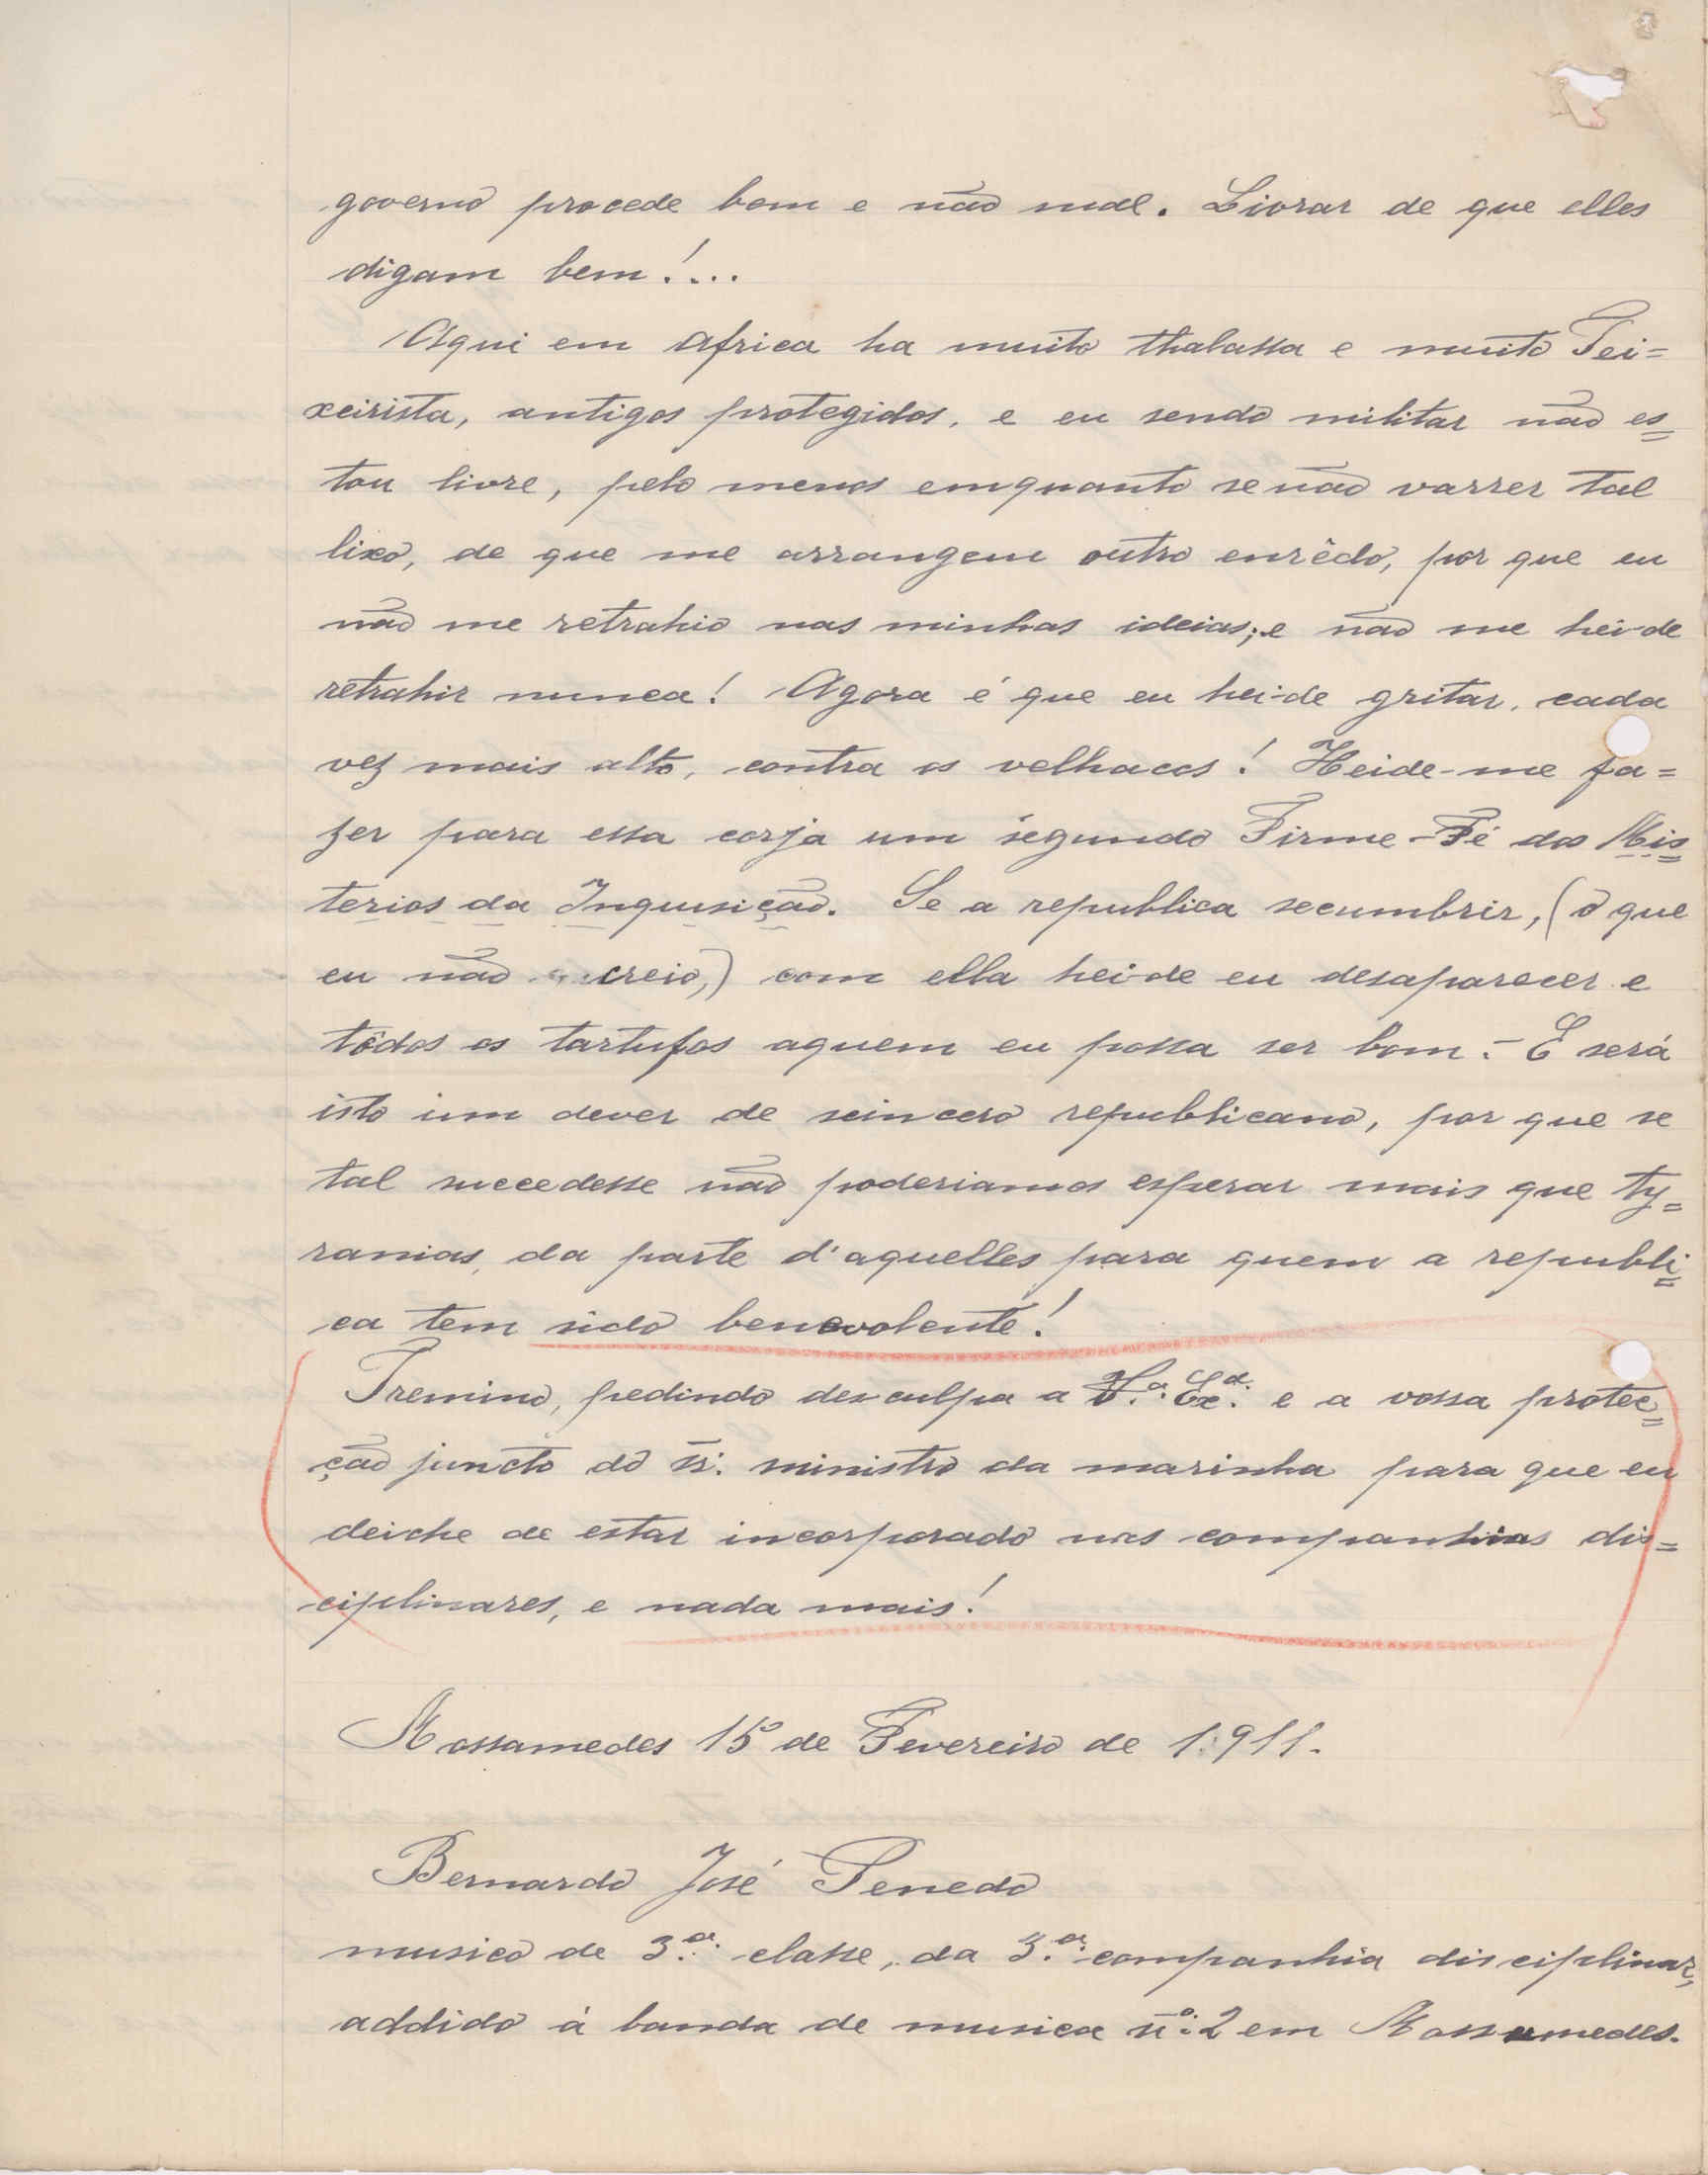 governo procede bem e não mal. Livrar de que elles
digam bem!...
Aqui em Africa ha muito thalassa e muito Tei=
xeirista, antigos protegidos, e eu sendo militar não es=
tou livre, pelo menos emquanto se não varrer tal
lixo, de que me arrangem outro enrêdo, por que eu
não me retrahio nas minhas ideias; e não me hei-de
retrahir nunca! Agora é que eu hei-de gritar, cada
vez mais alto, contra os velhacos! Heide-me fa=
zer para essa corja um segundo Firme-Fé dos Mis=
terios da Inquisição. Se a republica secumbrir, (o que
eu não creio,) com ella hei-de eu desaparecer e
tôdos os tartufos aquem eu possa ser bom. - E será
isto um dever de seincero republicano, por que se
tal succedesse não poderiamos esperar mais que ty=
ranias, da parte d'aquelles para quem a republi=
ca tem sido benevolente!
Tremino, pedindo desculpa a V.ª Ex.ª e a vossa protec=
ção juncto do sr. ministro da marinha para que eu
deiche de estar incorporado nas companhias dis=
ciplinares, e nada mais!
Mossamedes 15 de Fevereiro de 1.911.
Bernardo José Penedo
musico de 3.ª classe, da 3.ª companhia disciplinar,
addido á banda de musica n.º 2 em Mossamedes.